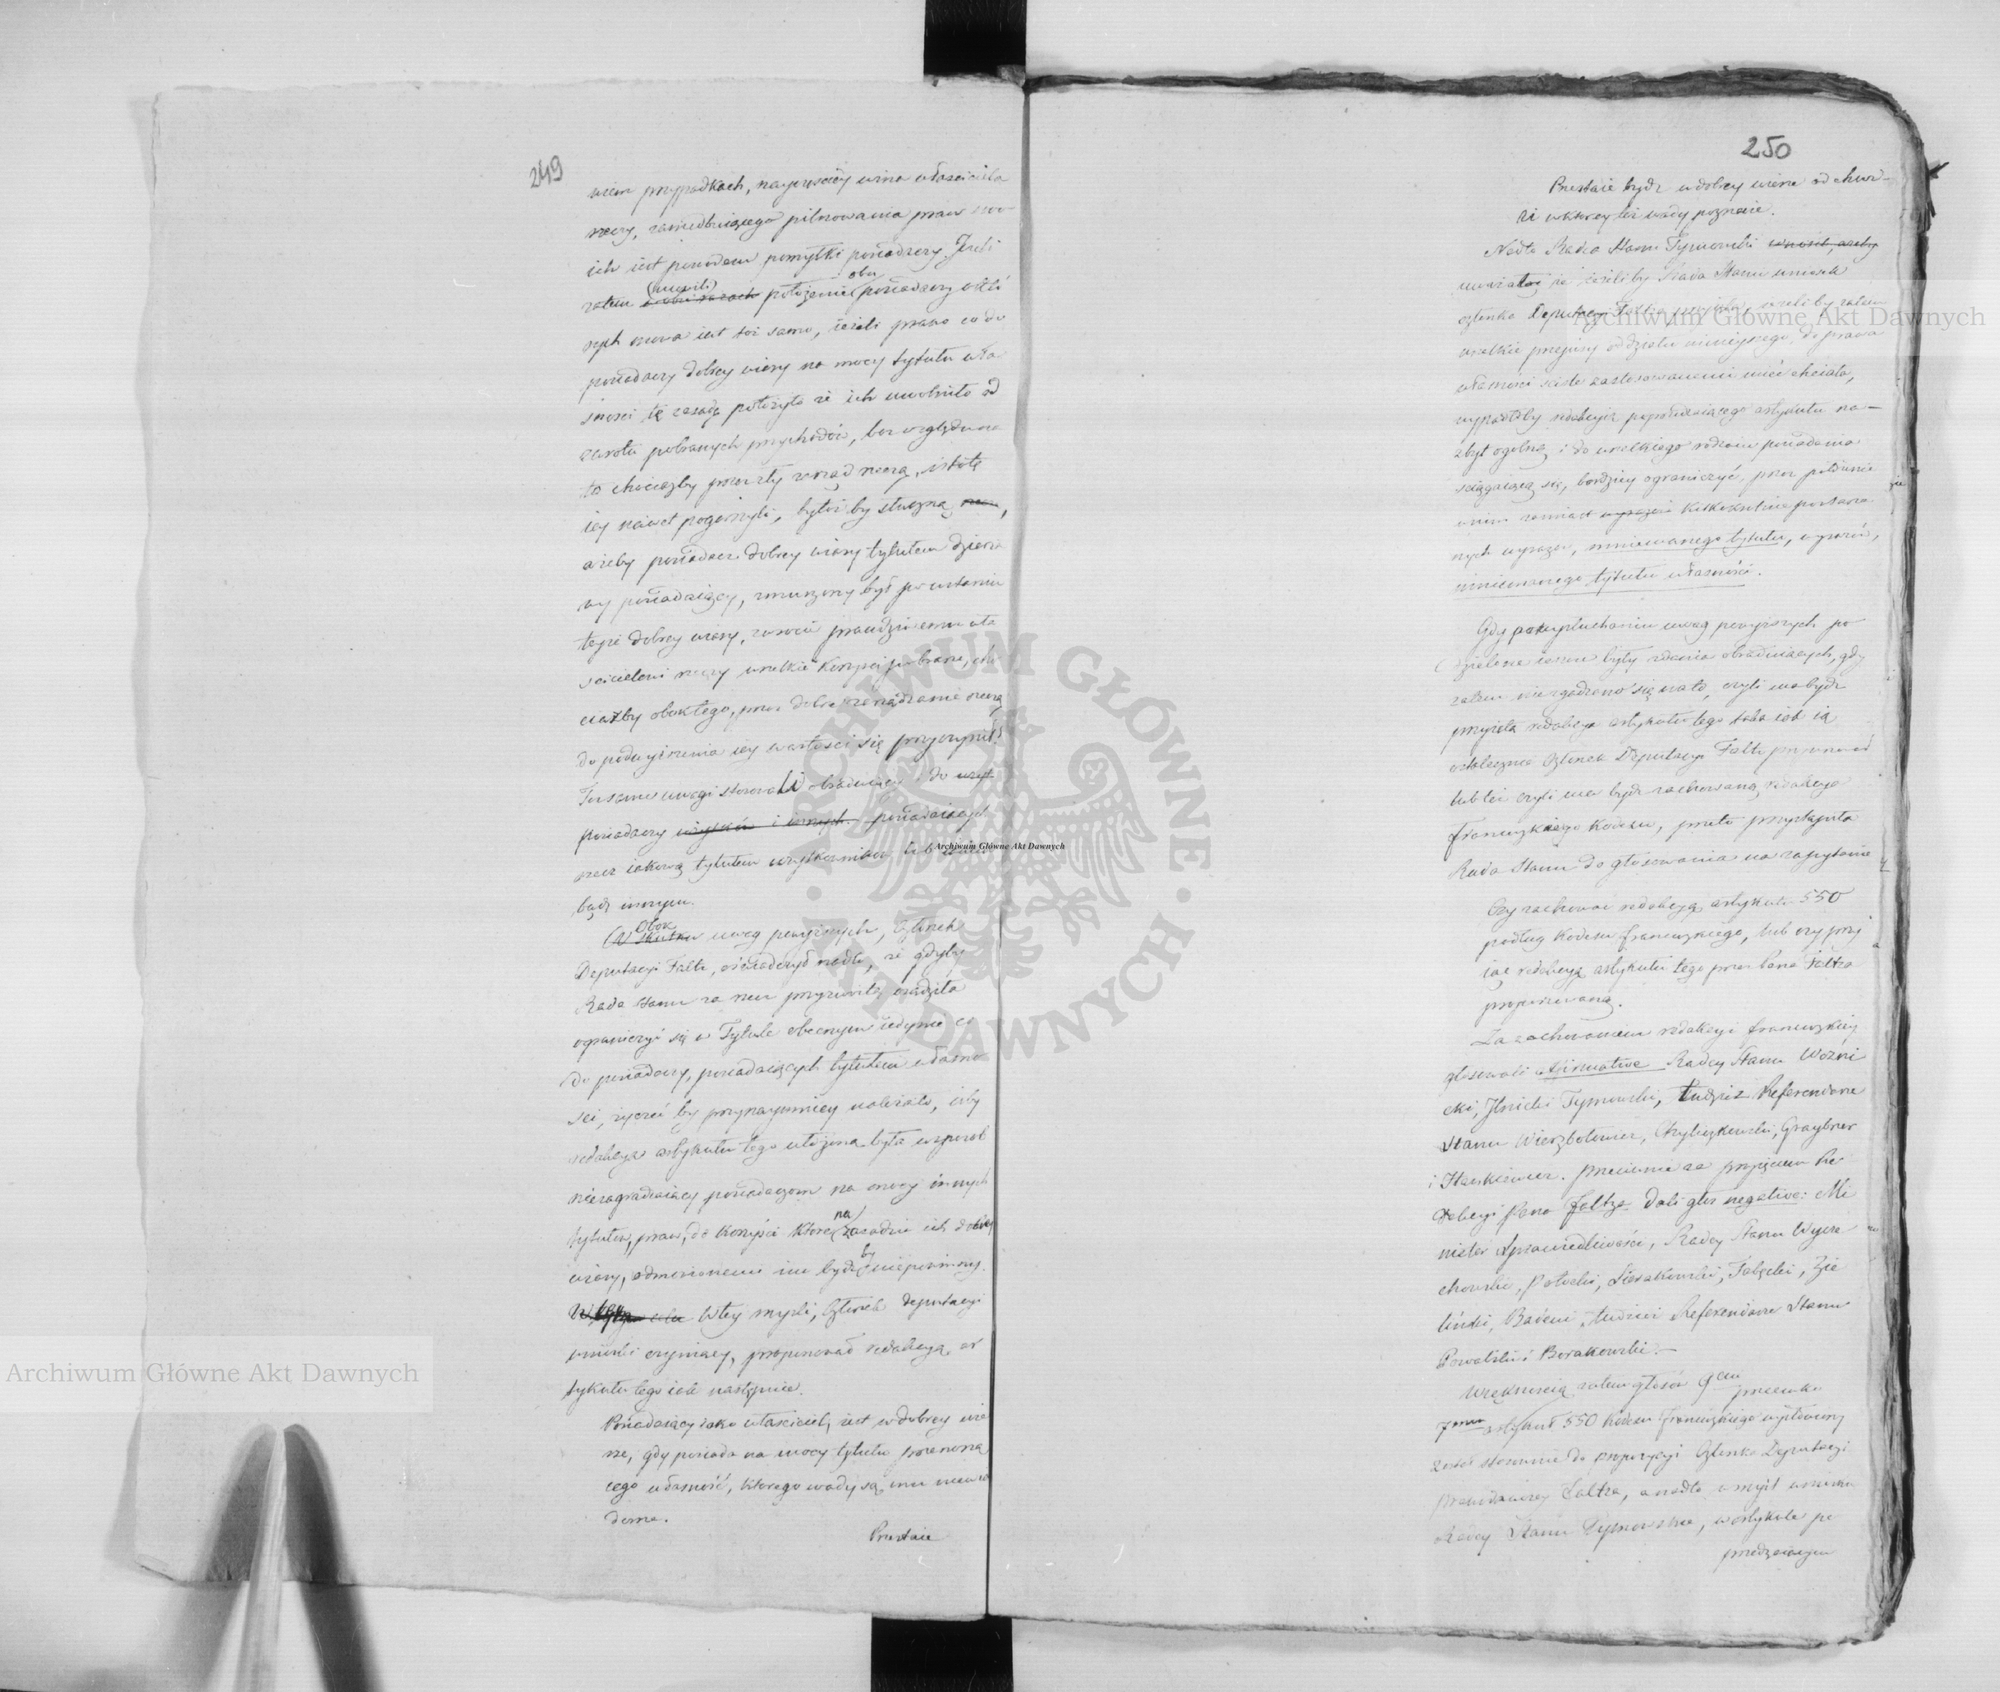 249
wiem przypadkach, nayczęściey wina właściciela
rzeczy, zaniedbuiącego pilnowania praw swo-
ich iest powodem pomyłki posiadaczy. Jeżeli
zatem (mówili) położenie obu posiadaczy o któ
rych mowa iest toż samo, ieżeli prawo co do
posiadaczy dobrey wiary na mocy tytułu wła
sności tę zasadę położyło że ich uwolniło od
zwrotu pobranych przychodów, bez względu na
to chociażby przez zły zarząd rzeczą, istotę
iey nawet pogorszyli, byłoż by słuszną
ażeby posiadacz dobrey wiary tytułem dzierża
wy posiadaiący, zmuszony był po ustaniu
teyże dobrey wiary, zwrócić prawdziwemu wła
ścicielowi rzeczy wszelkie korzyści pobrane, cho
ciażby obok tego, przez dobre zarządzanie rzeczą
do podwyższenia iey wartości się przyczynił?
Też same uwagi stosowali obraduiący i do
posiadaczy użytków i innych posiadaiących
rzecz iakową tytułem użytkowników lub
bądź innym.
Obok uwag powyższych, Członek
Deputacyi Faltz, oświadczył nadto, że gdyby
Rada Stanu za rzecz przyzwoitą osądziła
ograniczyć się w Tytule obecnym iedynie co
do posiadaczy, posiadaiących tytułem własno
ści, życzyć by przynaymniey należało, iżby
redakcya artykułu tego ułożona była w sposób
niezagradzaiący posiadaczom na mocy innych
tytułów, praw, do korzyści które na zasadzie ich dobrey
wiary, odmówionemi im bydź by niepowinny.
W tey myśli, Członek Deputacyi
wnioski czyniący, proponował redakcyą ar
tykułu tego iak następuie.
Posiadaiący iako właściciel, iest w dobrey wie
rze, gdy posiada na mocy tytułu przenoszą
cego własność, którego wady są mu niewia
dome.
Przestaie
250
Przestaie bydź w dobrey wierze od chwi-
li w którey też wady poznaie.
Nadto Radca Stanu Tymowski wnosił, ażeby
uważał że ieżeli by Rada Stanu wniosek
członka Deputacyi Faltza przyięła, ieżeli by zatem
wszelkie przepisy oddziału ninieyszego, do prawa
własności ściśle zastosowanemi mieć chciała,
wypadałby redakcyą poprzedzaiącego artykułu na-
zbyt ogólną i do wszelkiego rodzaiu posiadania
ściągaiącą się, bardziey ograniczyć, przez położenie
w nim zamiast wyrazów kilkokrotnie powtarza
nych wyrazów, mniemanego tytułu, wyrazów,
mniemanego tytułu własności.
Gdy po wysłuchaniu uwag powyższych po
dzielone ieszcze były zdania obraduiących, gdy
zatem niezgodzono się na to, czyli ma bydź
przyięta redakcya artykułu tego taka iak ią
ostatecznie Członek Deputacyi Faltz proponował
lub też czyli ma bydź zachowaną redakcya
Francuzkiego Kodexu, przeto przystąpiła
Rada Stanu do głosowania na zapytanie
Czy zachować redakcyą artykułu 550
podług Kodexu francuzkiego, lub czy przy
iąć redakcyą artykułu tego przez Pana Faltza
proponowaną.
Za zachowaniem redakcyi francuzkiey
głosowali affirmative Radcy Stanu Woźni
cki, Ilnicki Tymowski, tudzież Referendarze
Stanu Wierzbołowicz, Chyliczkowski, Graybner
i Hankiewicz. przeciwnie za przyjęciem Re
dakcyi Pana Faltza dali głos negative: Mi
nister Sprawiedliwości, Radcy Stanu Wycze
chowski, Potocki, Sierakowski, Fałęcki, Zie
liński, Badeni, tudzież Referendarze Stanu
Powalski i Borakowski.-
Większością zatem głosów 9ciu przeciwko
7miu artykuł 550 Kodexu francuzkiego wysłowiony
został stosownie do propozycyi Członka Deputacyi
prawodawczey Faltza, a nadto w myśl wniosku
Radcy Stanu Tymowskiego, w artykule po
przedzaiącym
Archiwum Główne Akt Dawnych
Archiwum Główne Akt Dawnych
Archiwum Główne Akt Dawnych
ARCHIWUM GŁÓWNE · AKT DAWNYCH ·